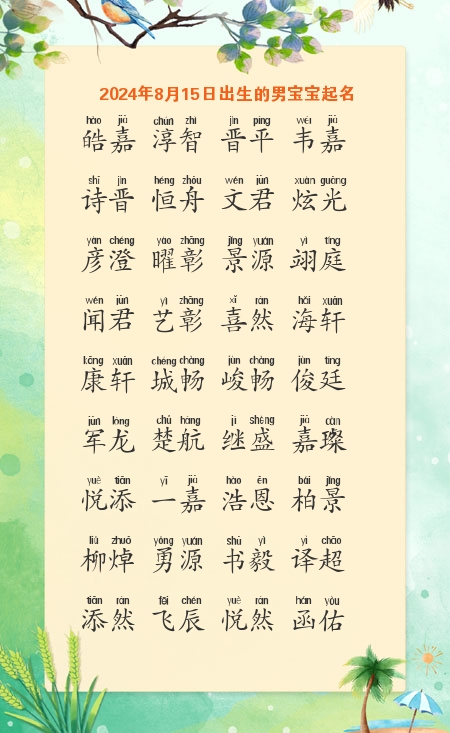 2024年8月15日出生的男宝宝起名
hào jiā chún zhì jìn píng wéi jiā
皓嘉 淳智 晋平 韦嘉
shī jìn héng zhōu wén jūn xuàn guāng
诗晋 恒舟 文君 炫光
yàn chéng yào zhāng jǐng yuán yì tíng
彦澄 曜彰 景源 翊庭
wén jūn yì zhāng xǐ rán hǎi xuān
闻君 艺彰 喜然 海轩
kāng xuān chéng chàng jùn chàng jùn tíng
康轩 城畅 峻畅 俊廷
jūn lóng chǔ háng jì shèng jiā càn
军龙 楚航 继盛 嘉璨
yuè tiān yī jiā hào ēn bǎi jǐng
悦添 一嘉 浩恩 柏景
liǔ zhuō yǒng yuán shū yì yì chāo
柳焯 勇源 书毅 译超
tiān rán fēi chén yuè rán hán yòu
添然 飞辰 悦然 函佑